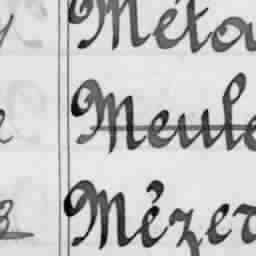 Méta
Meule
Mézer